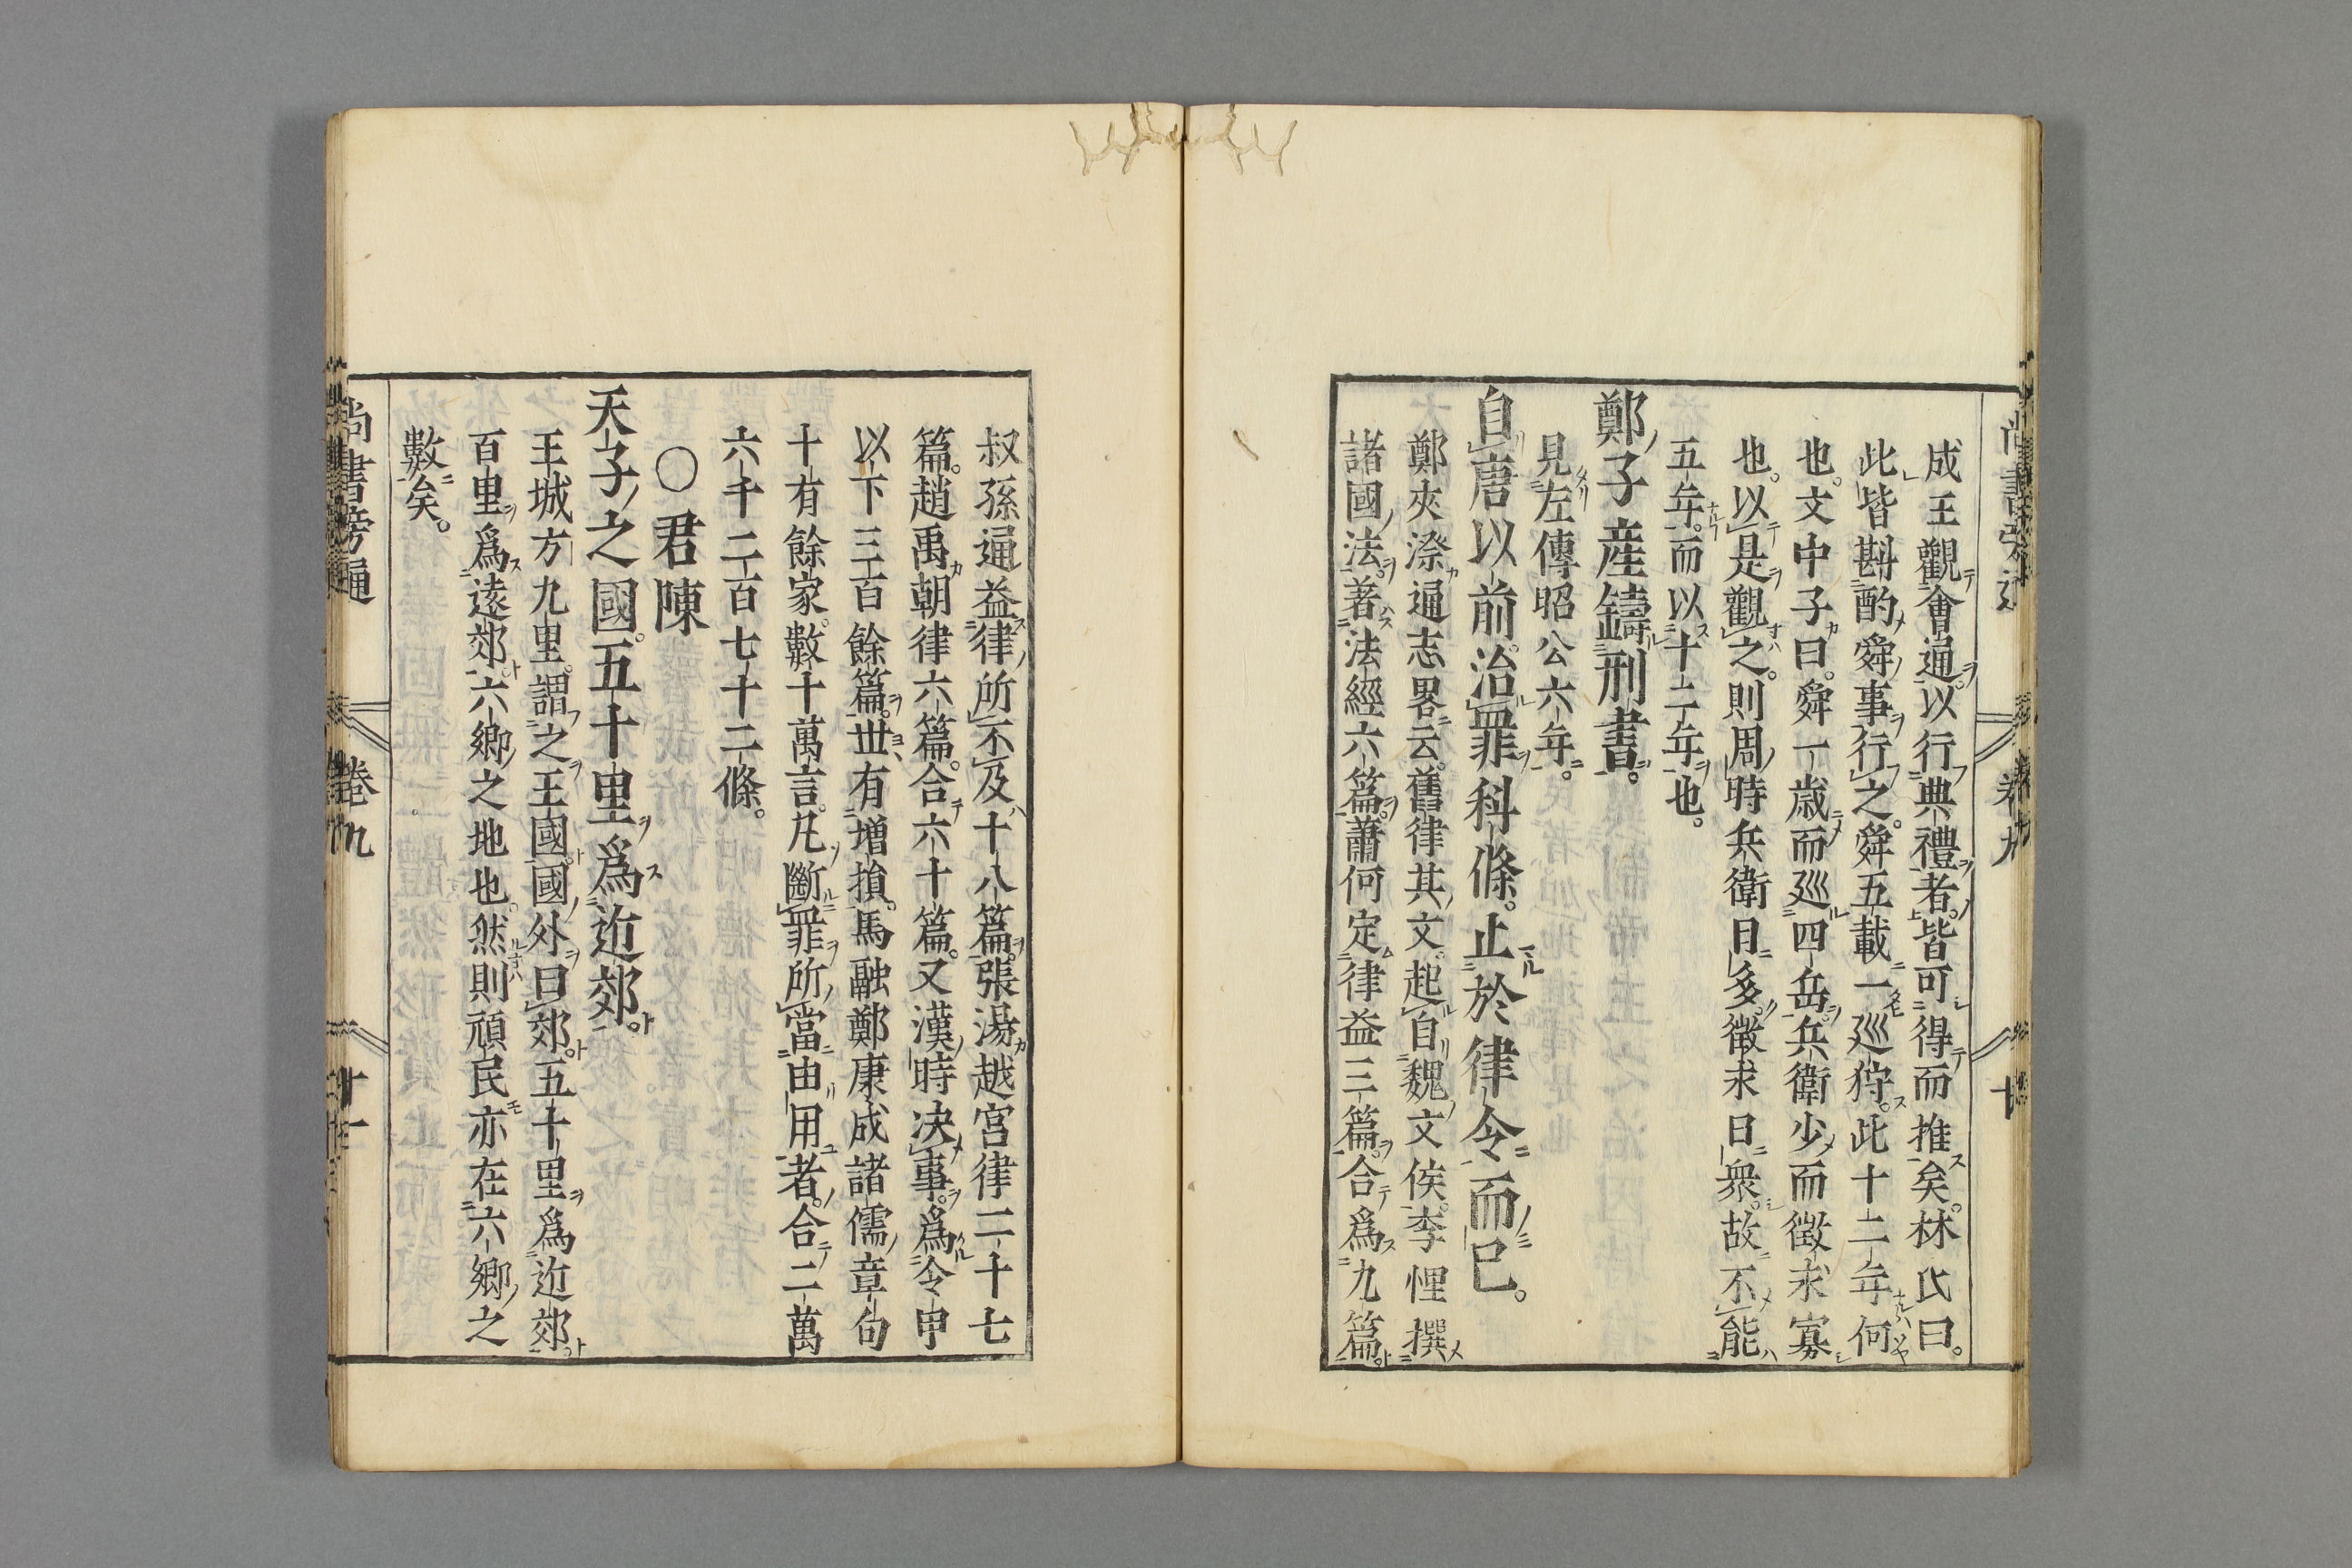 成王觀會通。以行典禮者。皆可得而推矣。林氏曰。
此皆斟酌舜事行之。舜五載一巡狩。此十二年何
也。文中子曰。舜一歳而巡四岳。兵衛少而徴求寡
也。以是觀之。則周時兵衛日多。徴求日衆。故不能
五年。而以十二年也。
鄭子産鑄刑書。
見左傳昭公六年。
自唐以前。治罪科條。止於律令而已。
鄭夾漈通志畧云。舊律其文起自魏文侯。李悝撰
諸國法。著法經六篇。蕭何定律益三篇。合爲九篇。
叔孫通益律所不及十八篇。張湯越宮律二十七
篇。趙禹朝律六篇。合六十篇。又漢時决事。爲令甲
以下三百餘篇。丗有増損。馬融鄭康成諸儒章句
十有餘家。數十萬言。凡斷罪所當由用者。合二萬
六千二百七十二條。
〇君陳
天子之國。五十里爲近郊。
王城方九里。謂之王國。國外曰郊。五十里爲近郊。
百里爲遠郊。六郷之地也。然則頑民亦在六郷之
數矣。
尚書旁通 卷九 十一